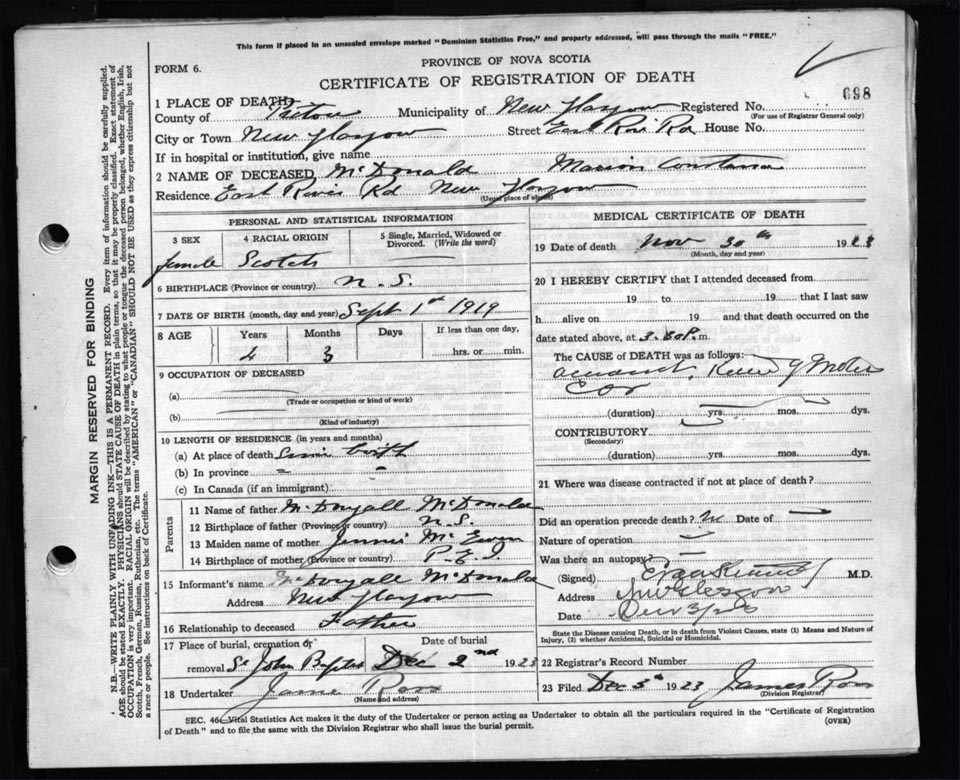 This form if placed in an unsealed envelope marked "Dominion Statistics Free," and properly addressed, will pass through the mails "FREE."
PROVINCE OF NOVA SCOTIA
FORM 6.
CERTIFICATE OF REGISTRATION OF DEATH
698
1 PLACE OF DEATH
County of Pictou Municipality of New Glasgow Registered No.
(For use of Registrar General only)
City or Town New Glasgow Street East River Rd House No.
If in hospital or institution, give name
2 NAME OF DECEASED, McDonald Marion Constance
Residence East River Rd New Glasgow
(Usual place of abode)
PERSONAL AND STATISTICAL INFORMATION
3 SEX 4 RACIAL ORIGIN 5 Single, Married, Widowed or Divorced. (Write the word)
female Scotch
6 BIRTHPLACE (Province or country) N. S.
7 DATE OF BIRTH (month, day and year) Sept 1st 1919
8 AGE Years Months Days If less than one day,
4 3 hrs. or min.
9 OCCUPATION OF DECEASED
(a)
(Trade or occupation or kind of work)
(b)
(Kind of industry)
10 LENGTH OF RESIDENCE (in years and months)
(a) At place of death birth
(b) In province
(c) In Canada (if an immigrant)
Parents
11 Name of father McDougall McDonald
12 Birthplace of father (Province or country) N. S.
13 Maiden name of mother Jennie McEwen
14 Birthplace of mother (Province or country) P. E. I
15 Informant's name McDougall McDonald
Address New Glasgow
16 Relationship to deceased Father
17 Place of burial, cremation or removal St John Baptist Date of burial Dec 2nd 1923
18 Undertaker James Ross
(Name and address)
MEDICAL CERTIFICATE OF DEATH
19 Date of death Nov 30th 1923
(Month, day and year)
20 I HEREBY CERTIFY that I attended deceased from
19 to 19 that I last saw
h alive on 19 and that death occurred on the
date stated above, at 3. P. m.
The CAUSE OF DEATH was as follows:
accident, Killed by Motor
Car
(duration) yrs. mos. dys.
CONTRIBUTORY
(Secondary)
(duration) yrs. mos. dys.
21 Where was disease contracted if not at place of death?
Did an operation precede death? Date of
Nature of operation
Was there an autopsy?
(Signed) M.D.
Address
Date
State the Disease causing Death, or in death from Violent Causes, state (1) Means and Nature of Injury, (2) whether Accidental, Suicidal or Homicidal.
22 Registrar's Record Number
23 Filed Dec 1923 James Ross
(Division Registrar)
SEC. 46—Vital Statistics Act makes it the duty of the Undertaker or person acting as Undertaker to obtain all the particulars required in the "Certificate of Registration
of Death" and to file the same with the Division Registrar who shall issue the burial permit.
(OVER)
MARGIN RESERVED FOR BINDING
N.B.—WRITE PLAINLY WITH UNFADING INK—THIS IS A PERMANENT RECORD. Every item of information should be carefully supplied.
AGE should be stated EXACTLY. PHYSICIANS should STATE CAUSE OF DEATH in plain terms, so that it may be properly classified. Exact statement of
OCCUPATION is very important. RACIAL ORIGIN will be described by stating to what people or tongue the deceased person belonged, whether English, Irish,
Scotch, French, German, Russian, Ruthenian, etc. The terms "AMERICAN" or "CANADIAN" SHOULD NOT BE USED as they express citizenship but not
a race or people. See instructions on back of Certificate.